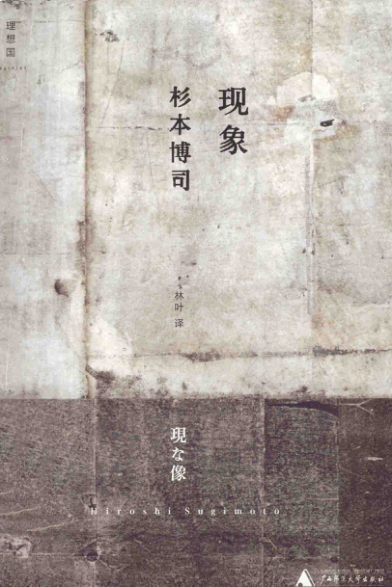 理想国
现象
杉本博司
林叶 译
現な像
Hiroshi Sugimoto
广西师范大学出版社